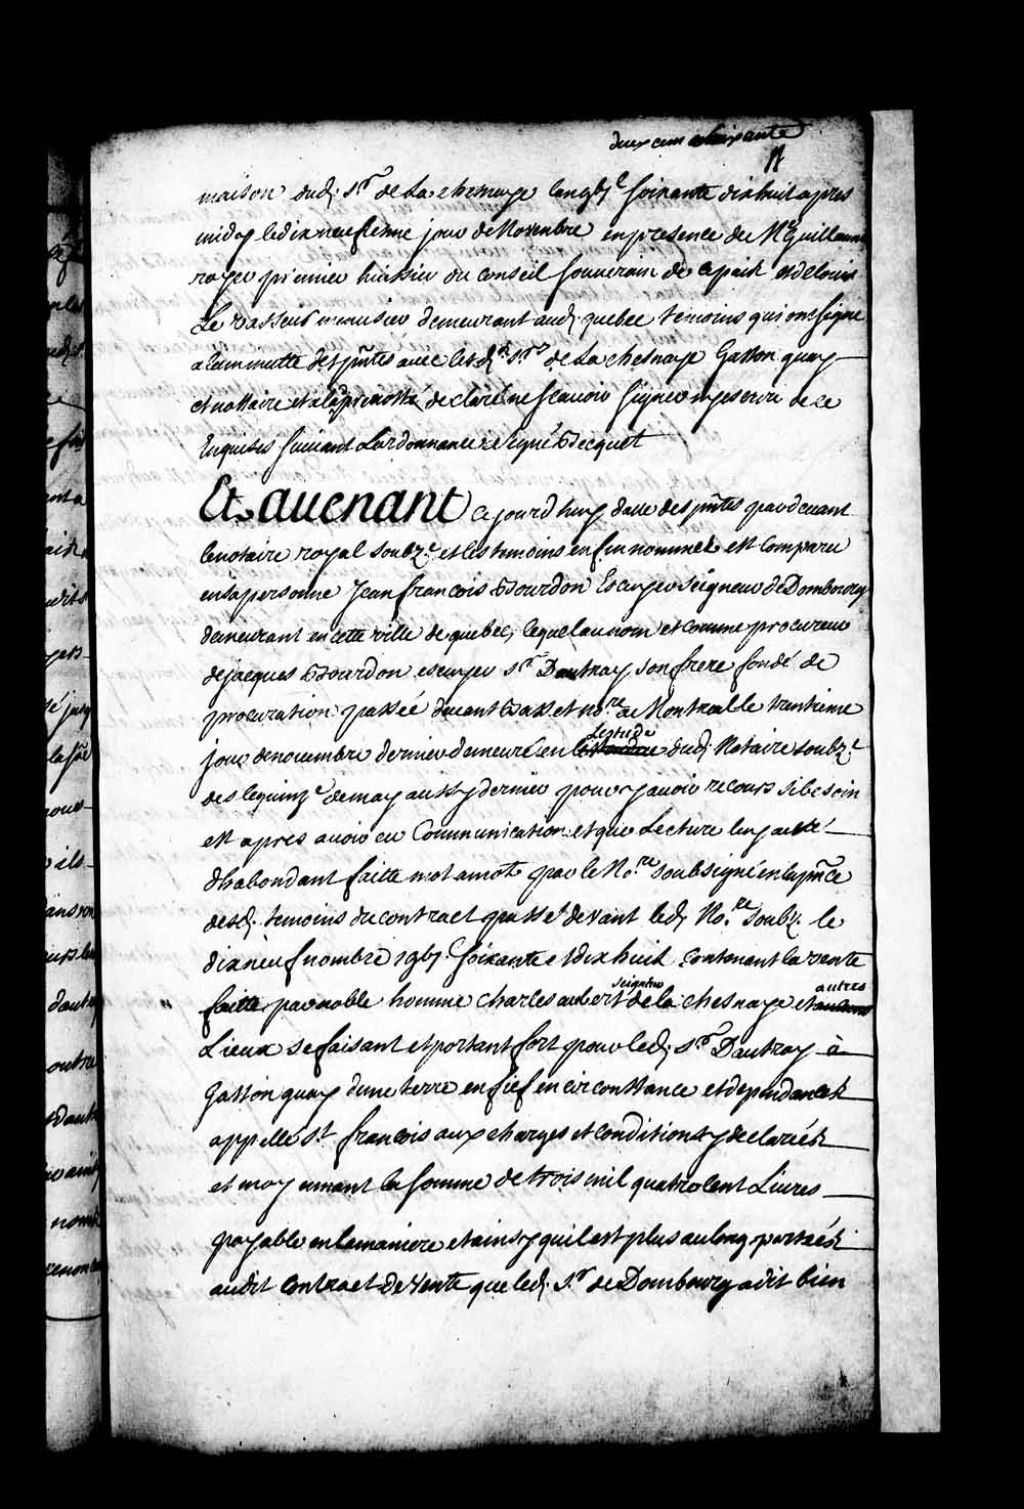 deux cent soixante
maison dudt Sr de La chesnaye lan gbic soixante dixhuit apres
midy le dixneufiesme jour de Novembre en presence de Me Guillaume
roger premier huissier du conseil souverain de ce païs et de louis
Le vasseur menusier demeurant audt quebec temoins qui ont signé
a la minutte des pntes avec lesdts Srs de La chesnaye Gaston quay
et nottaire et a declaré ne scavoir signer de ce
Enquises suivant Lordonnance signé Becquet
Et auenant ce jourdhuy datte des pntes par devant
le notaire royal soubzé et les temoins en fin nommés est comparu
en sa personne Jean francois Bourdon Escuyer seigneur de Dombourg
demeurant en cette ville de quebec, lequel au nom et comme procureur
de jacques Bourdon escuyer Sr Dautray son frere fondé de
procuration passée devant Basset nore de Montreal le trentieme
jour de novembre dernier demeuré en Lestude dudt Notaire soubzé
des le quinze de may aussy dernier pour y avoir recours si besoin
est apres avoir eu Communication et que Lecture luy a esté
dhabondant faitte mot a mot par le Nore soubsigné en la pnce
desdt temoins du contract passé devant ledt Nore soubz. le
dixneuf nombre 1gbic soixante et dix huit contenant la vente
faitte par noble homme Charles aubert seigneur de la chesnaye et autres
Lieux se faisant et portant fort pour ledt Sr Dautray à
Gaston quay dune terre en fief en circonstance et dependances
appellé St francois aux charges et conditions y declarées
et moyennant la somme de trois mil quatre cent Livres
payable en la maniere et ainsy quil est plus au long portées
audit contract de vente que ledt Sr de Dombourg a dit bien